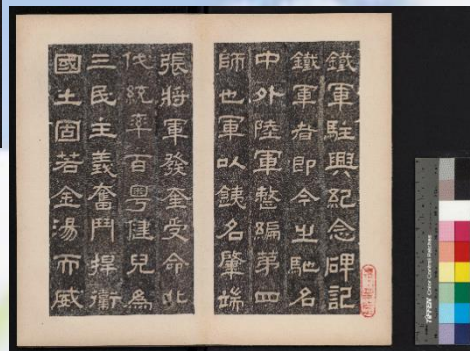 鐵軍駐興紀念碑記
鐵軍者即今之馳名
中外陸軍整編第四
師也軍以銕名肇端
張將軍發奎受命北
伐統率百粵健兒為
三民主義奮鬥捍衛
國土固若金湯而威
TIFFEN Color Control Patches